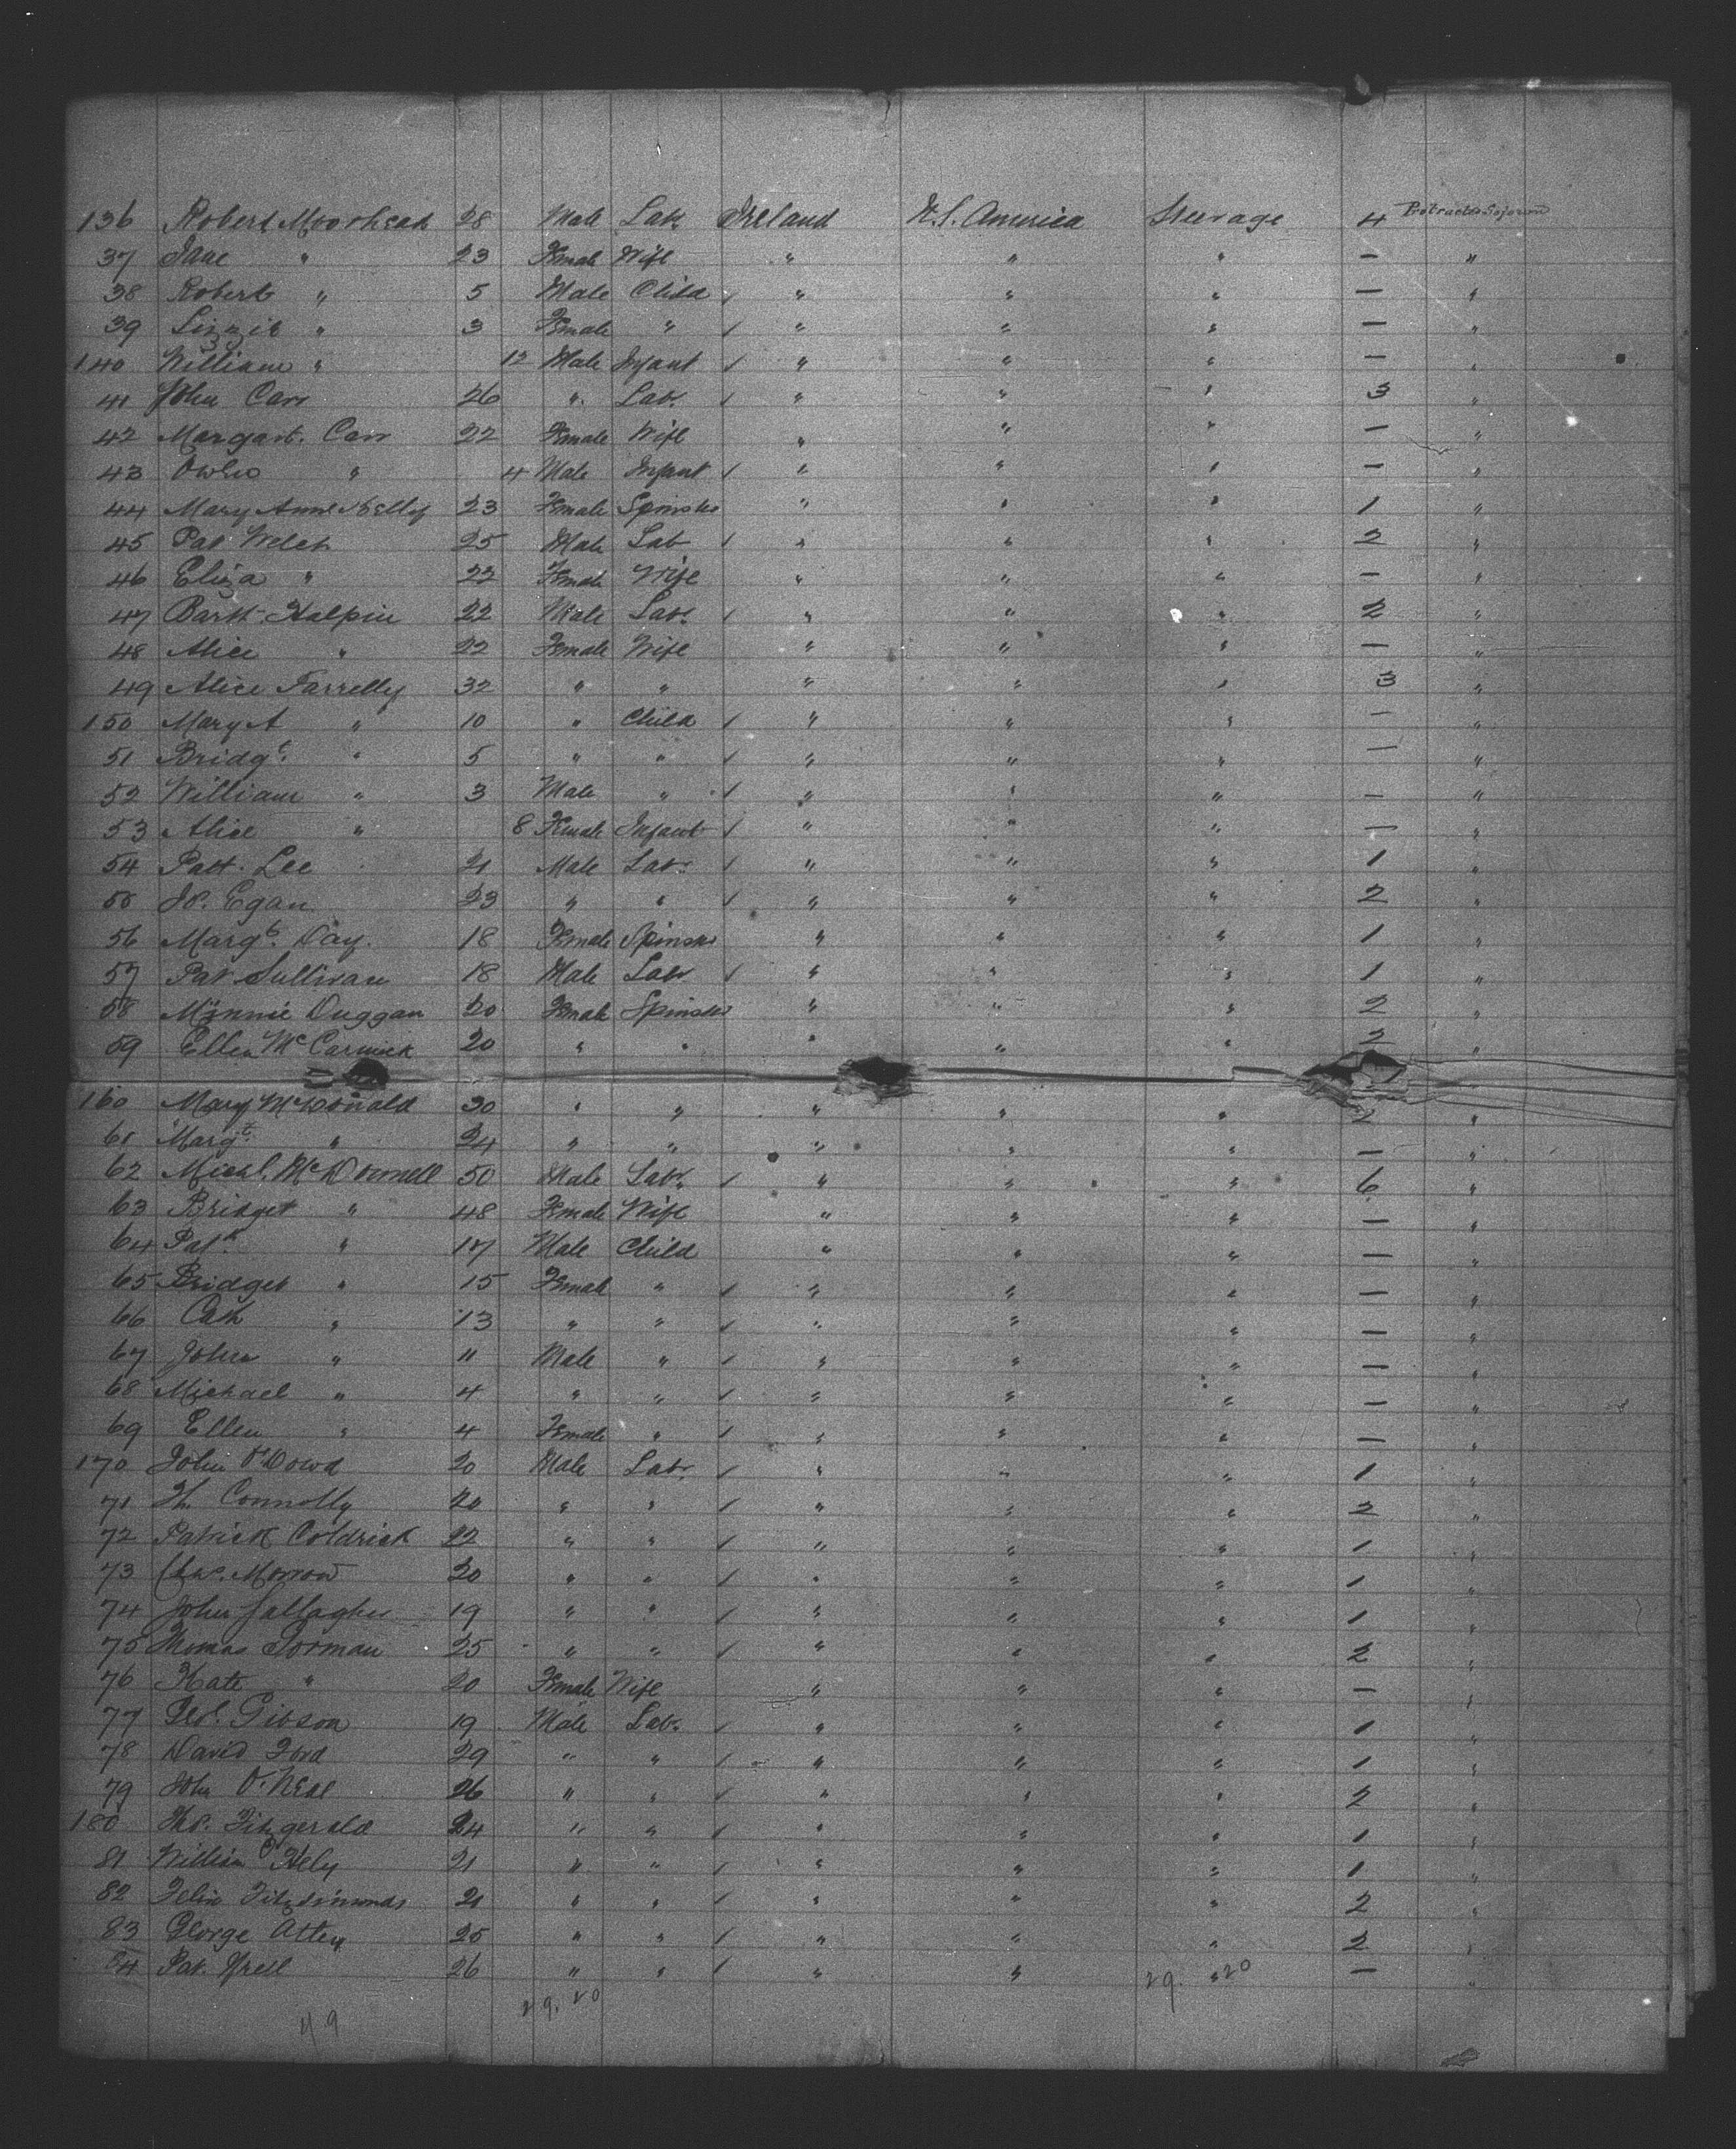 136 Robert Moorhead 28 Male Lab. Ireland U.S. America Steerage 4 Protracted Sojourn
37 Jane " 23 Female Wife " " " — "
38 Robert " 5 Male Child / " " " — "
39 Lizzie " 3 Female " / " " " — "
140 William " 12 Male Infant / " " " — "
41 John Carr 26 " Lab. / " " " 3 "
42 Margart. Carr 22 Female Wife " " " — "
43 Owen " 4 Male Infant / " " " — "
44 Mary Anne Kelly 23 Female Spinster " " " 1 "
45 Pat Welch 25 Male Lab / " " " 2 "
46 Eliza " 22 Female Wife " " " — "
47 Bartt. Halpin 22 Male Lab. / " " " 2 "
48 Alice " 22 Female Wife " " " — "
49 Alice Farrelly 32 " " " " " 3 "
150 Mary A " 10 " Child / " " " — "
51 Bridgt. " 5 " " / " " " — "
52 William " 3 Male " / " " " — "
53 Alice " 8 Female Infant / " " " — "
54 Patt. Lee 21 Male Lab. / " " " 1 "
55 Jo. Egan 23 " " / " " " 2 "
56 Margt. Day. 18 Female Spinster " " " 1 "
57 Pat Sullivan 18 Male Lab. / " " " 1 "
58 Minnie Duggan 20 Female Spinster " " " 2 "
59 Ellen McCormick 20 " " " " " 2 "
160 Mary McDonald 30 " " " " " 2 "
61 Margt. " 24 " " " " " — "
62 Michl. McDonnell 50 Male Lab. / " " " 6 "
63 Bridget " 48 Female Wife " " " — "
64 Patk. " 17 Male Child " " " — "
65 Bridget " 15 Female " / " " " — "
66 Cath " 13 " " / " " " — "
67 John " 11 Male " / " " " — "
68 Michael " 4 " " / " " " — "
69 Ellen " 4 Female " / " " " — "
170 John O'Dowd 20 Male Lab. / " " " 1 "
71 Th. Connolly 20 " " / " " " 2 "
72 Patrick Coldrick 22 " " / " " " 1 "
73 Chas. Morrow 20 " " / " " " 1 "
74 John Gallagher 19 " " / " " " 1 "
75 Thomas Gorman 25 " " / " " " 2 "
76 Kate " 20 Female Wife " " " — "
77 Geo. Gibson 19 Male Lab. / " " " 1 "
78 David Ford 29 " " / " " " 1 "
79 John O'Neal 26 " " / " " " 2 "
180 Tho. Fitzgerald 24 " " / " " " 1 "
81 William Hely 21 " " / " " " 1 "
82 Felix Fitzsimonds 21 " " / " " " 2 "
83 George Atley 25 " " / " " " 2 "
84 Pat. 26 " " / " " " — "
29. 20
29. 20
49